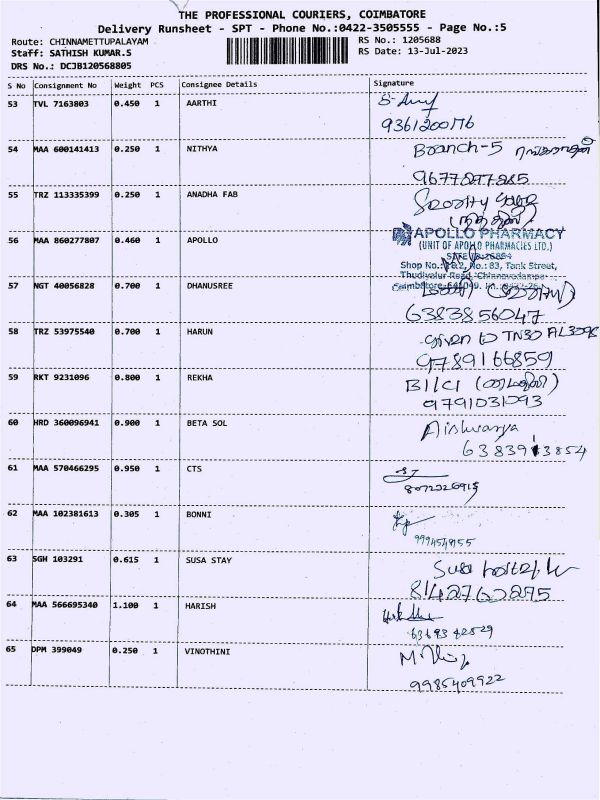 THE PROFESSIONAL COURIERS, COIMBATORE
Delivery Runsheet - SPT - Phone No.:0422-3505555 - Page No.:5
Route: CHINNAMETTUPALAYAM RS No.: 1205688
Staff: SATHISH KUMAR.S RS Date: 13-Jul-2023
DRS No.: DCJB120568805
S No Consignment No Weight PCS Consignee Details Signature
53 TVL 7163803 0.450 1 AARTHI
9361200176
54 MAA 600141413 0.250 1 NITHYA Branch-5
9677277285
55 TRZ 113335399 0.250 1 ANADHA FAB
56 MAA 860277807 0.460 1 APOLLO APOLLO PHARMACY
(UNIT OF APOLLO PHARMACIES LTD.)
Shop No.: 1&2, No.: 83, Tank Street,
Thudiyalur Road,
57 NGT 40056828 0.700 1 DHANUSREE
6383856047
58 TRZ 53975540 0.700 1 HARUN given to TN30 AL3098
9789166859
59 RKT 9231096 0.800 1 REKHA B1/C1
9791031093
60 HRD 360096941 0.900 1 BETA SOL Aishwarya
6383913854
61 MAA 570466295 0.950 1 CTS
8072326915
62 MAA 102381613 0.305 1 BONNI
63 SGH 103291 0.615 1 SUSA STAY Susa
8142762275
64 MAA 566695340 1.100 1 HARISH
6369342829
65 DPM 399049 0.250 1 VINOTHINI
9985409922